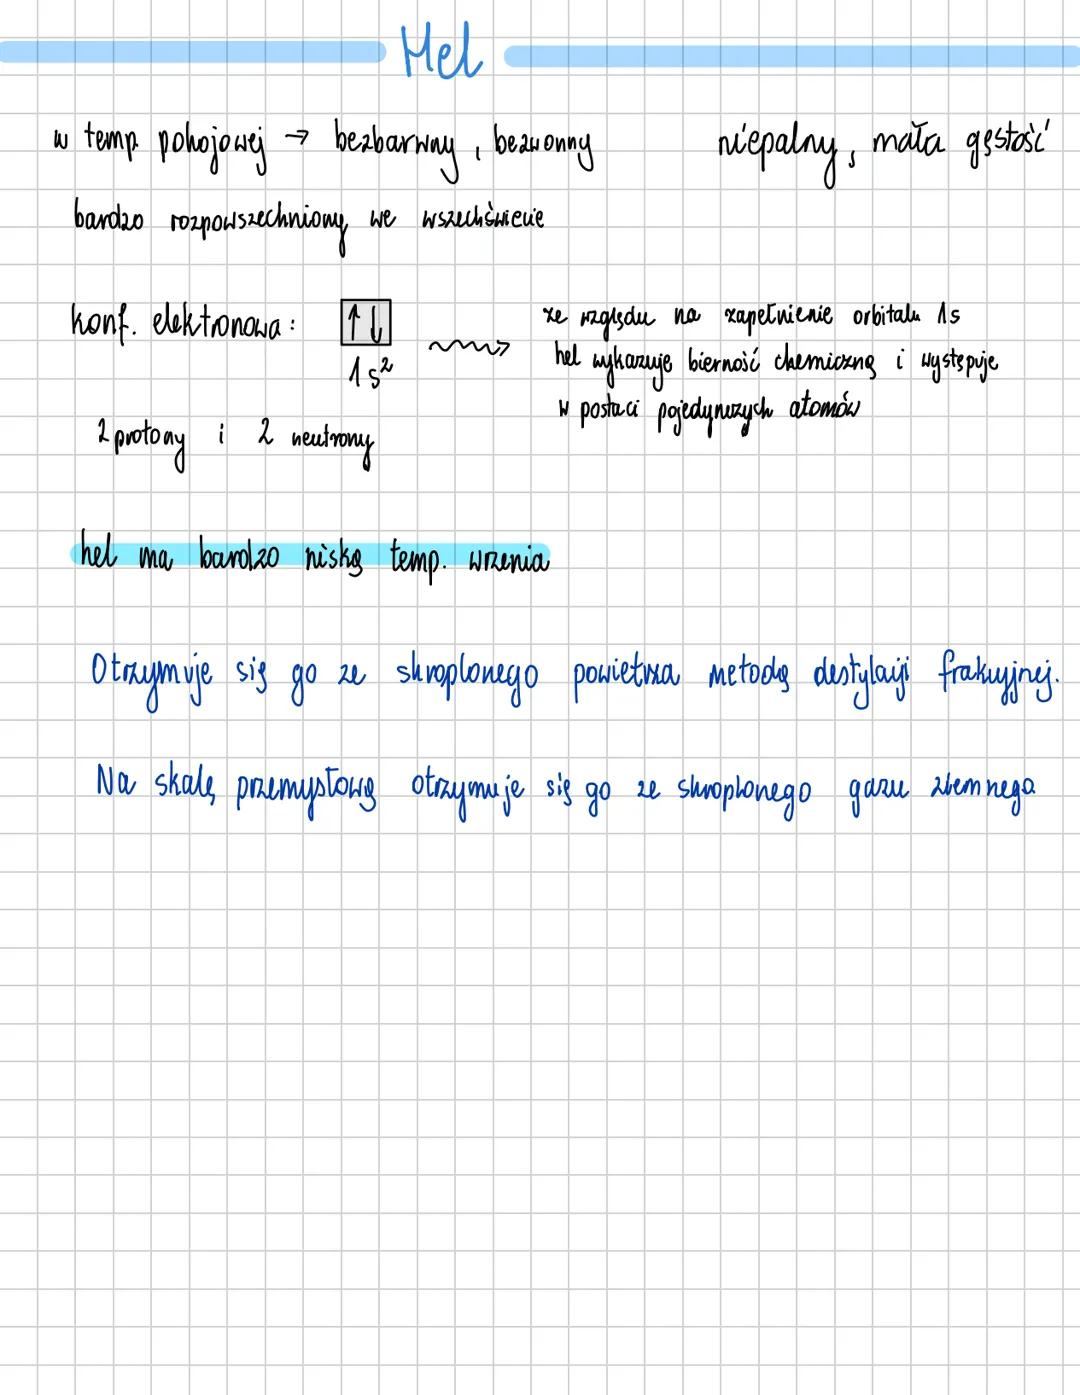 Hel
w temp. pokojowej → bezbarwny, bezwonny niepalny, mała gęstość
bardzo rozpowszechniony we wszechświecie
konf. elektronowa: ↑↓
1s²
ze względu na zapełnienie orbitalu 1s
hel wykazuję bierność chemiczną i występuje
w postaci pojedynczych atomów
2 protony i 2 neutrony
hel ma bardzo niską temp. wrzenia
Otrzymuje się go ze skroplonego powietrza metodą destylacji frakcyjnej.
Na skalę przemysłową otrzymuje się go ze skroplonego gazu ziemnego